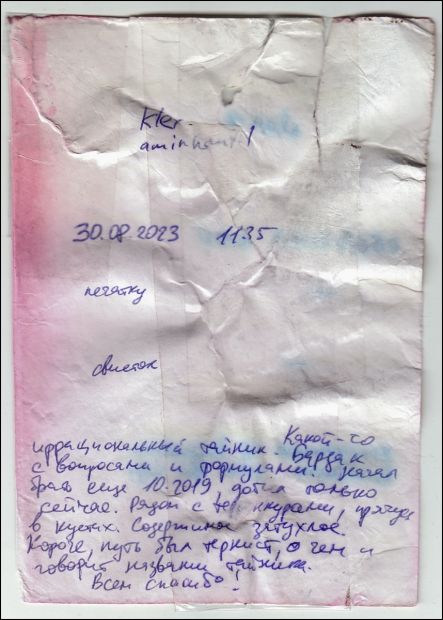 kler
30.08.2023 1135
печатку
свисток
иррациональный тайник. Какой-то бардак
с вопросами и формулами. Начал
брать еще 10.2019 только
сейчас. Рядом с
в кустах. Содержимое затухлое.
Короче, путь был тернист, о чем и
говорит название тайника.
Всем спасибо!